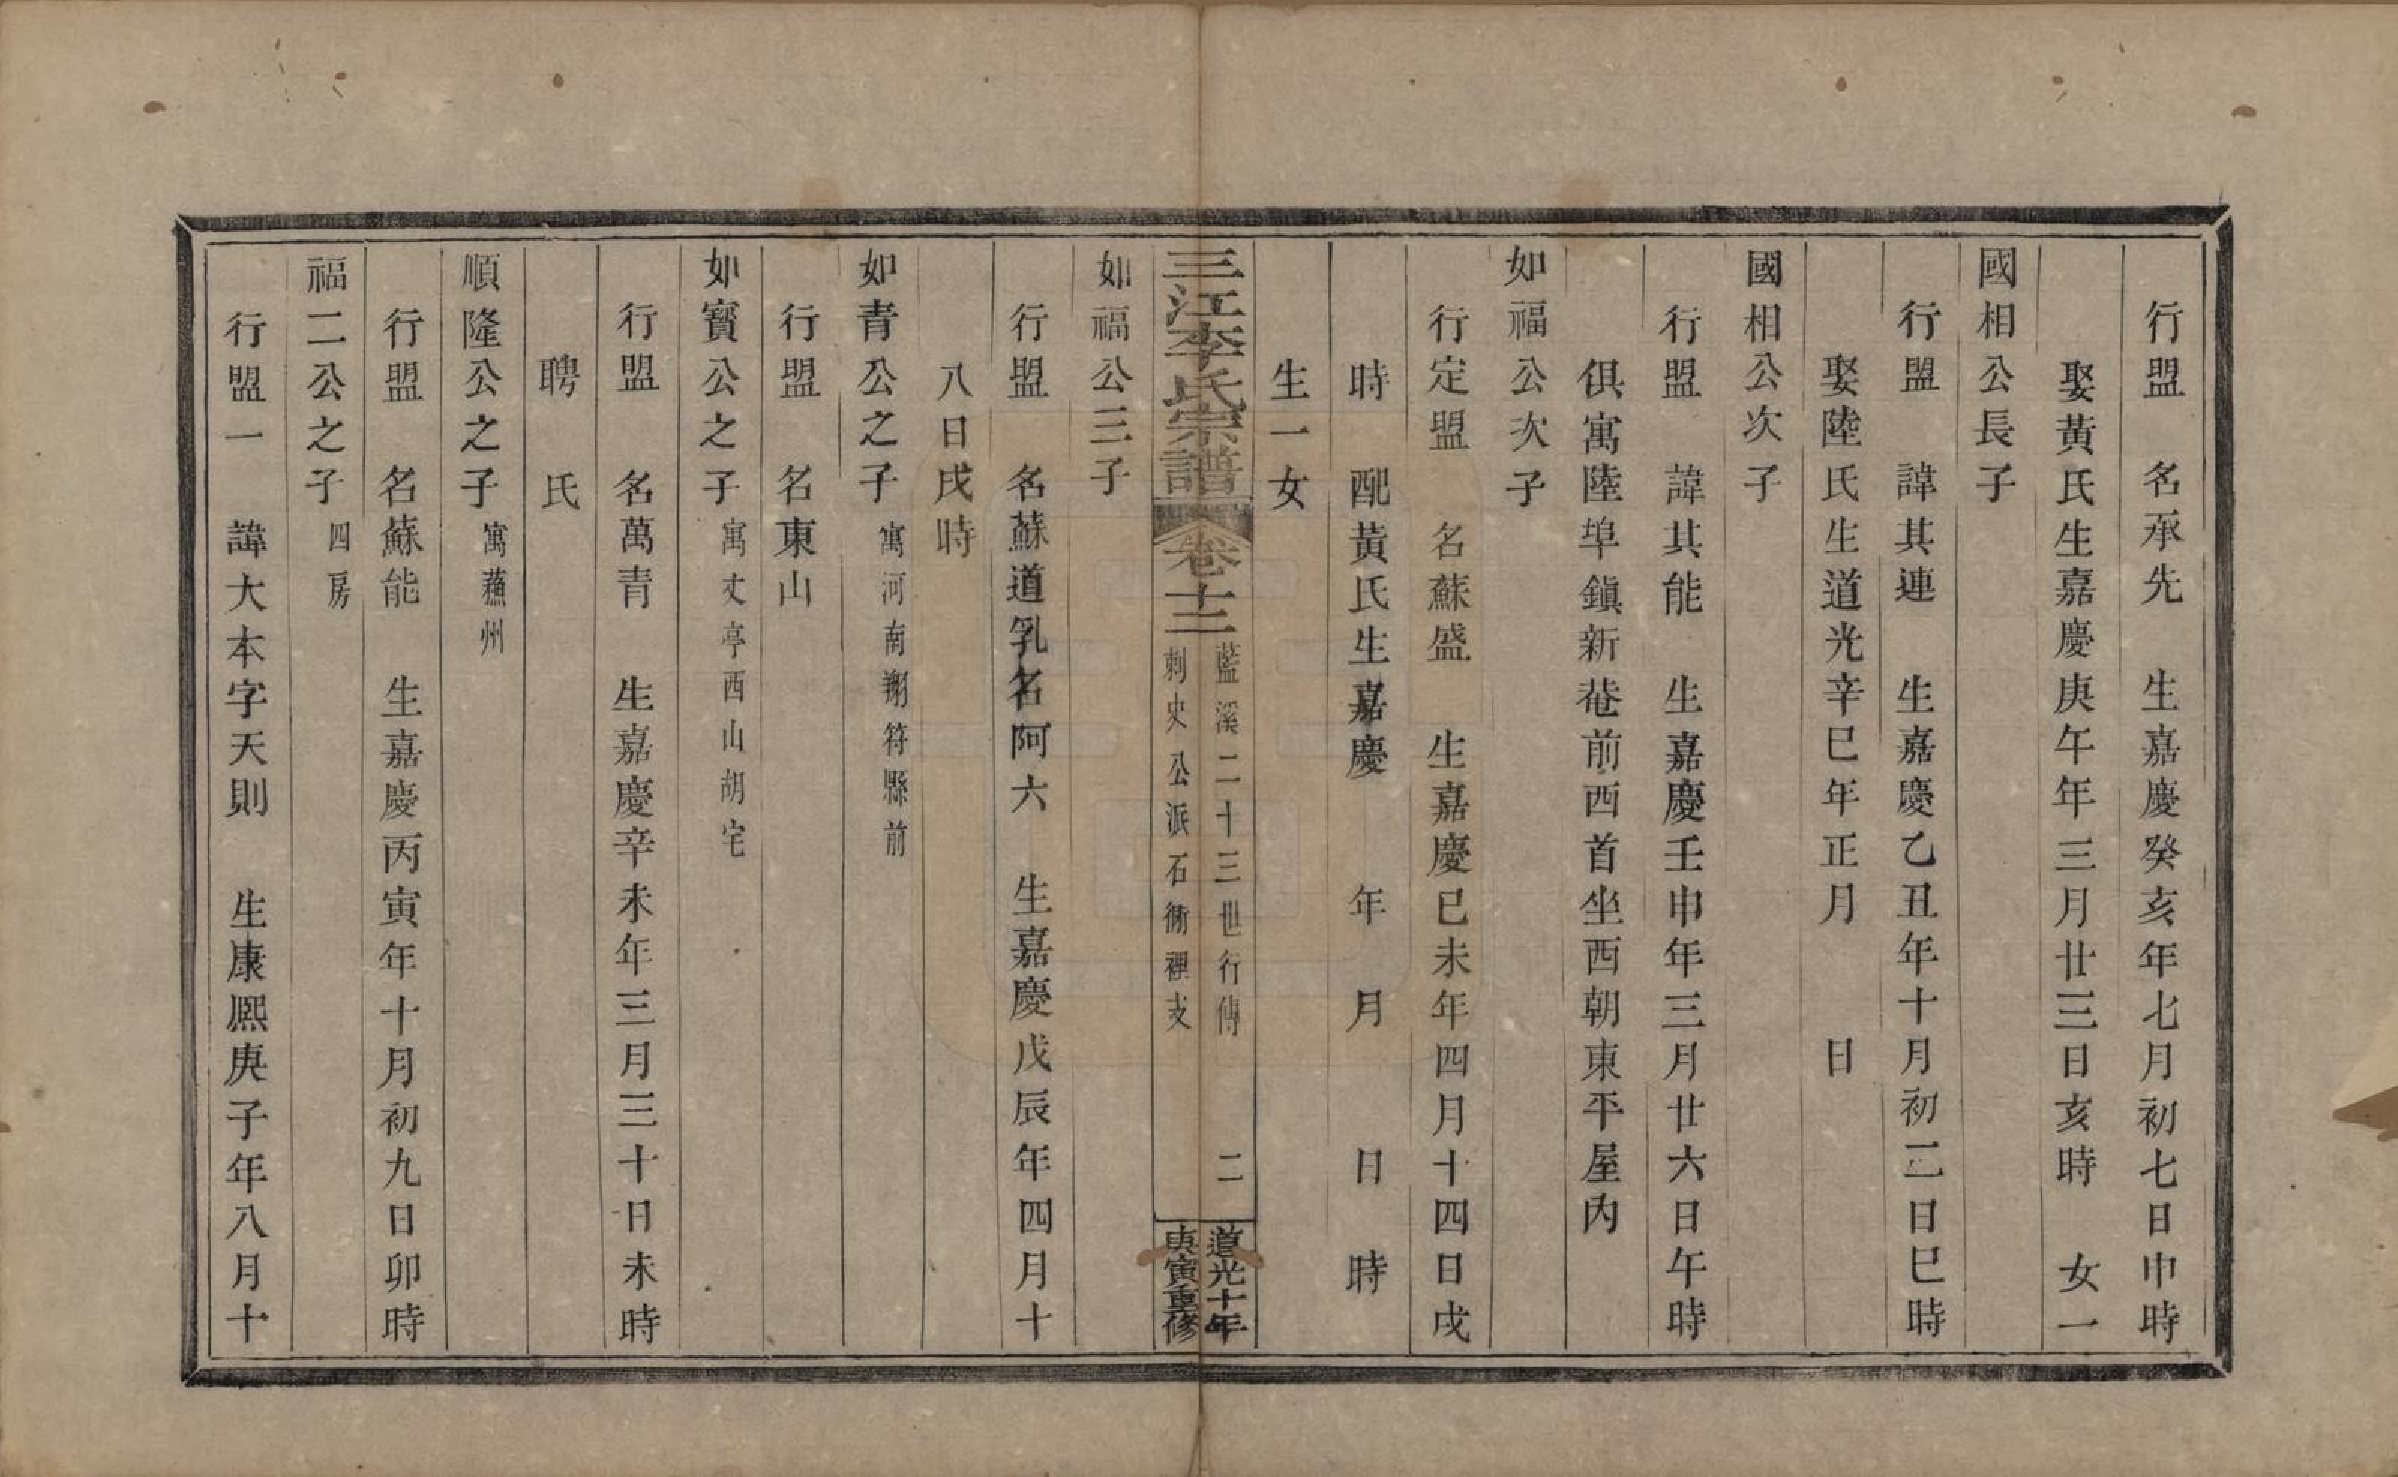 行盟　名承先　生嘉慶癸亥年七月初七日申時
娶黃氏生嘉慶庚午年三月廿三日亥時　女一
國相公長子
行盟　諱其連　生嘉慶乙丑年十月初二日巳時
娶陸氏生道光辛巳年正月　　日
國相公次子
行盟　諱其能　生嘉慶壬申年三月廿六日午時
俱寓陸埠鎭新菴前西首坐西朝東平屋內
如福公次子
行定盟　名蘇盛　生嘉慶已未年四月十四日戌
時　配黃氏生嘉慶　　年　月　　日　時
生一女
三江李氏宗譜　卷十二　藍溪二十三世行傳　二　道光十年
刺史公派石衕裡支　庚寅重修
如福公三子
行盟　名蘇道乳名阿六　生嘉慶戊辰年四月十
八日戌時
如青公之子　寓河南翔符縣前
行盟　名東山
如寶公之子　寓丈亭西山胡宅
行盟　名萬青　生嘉慶辛未年三月三十日未時
聘　氏
順隆公之子　寓蘓州
行盟　名蘇能　生嘉慶丙寅年十月初九日卯時
福二公之子　四房
行盟一　諱大本字天則　生康熙庚子年八月十